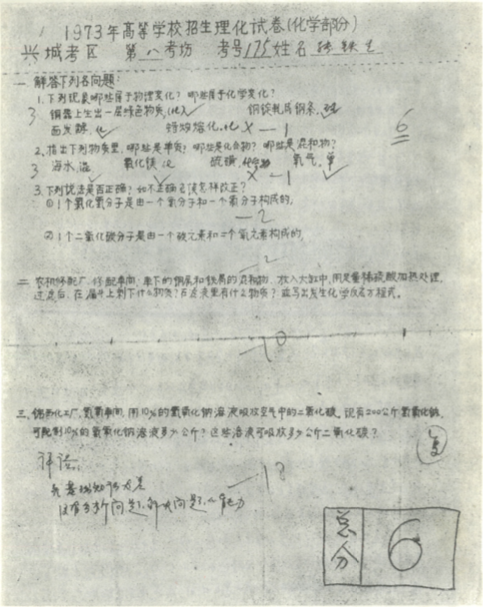 1973年高等学校招生理化试卷(化学部分)
兴城考区 第八考场 考号175姓名 张铁生
一 解答下列各问题:
1. 下列现象哪些属于物理变化? 哪些属于化学变化?
3 铜器上生出一层绿色物质, 钢锭轧成钢条,
面发酵,化 熔化,化 × —1 6
2. 指出下列物质里,哪些是单质?哪些是化合物?哪些是混和物?
3 海水,混 氧化镁 硫磺, 氧气,单
× —1
3. 下列说法是否正确? 如不正确应该怎样改正?
①1个氯化氢分子是由一个氢分子和一个氯分子构成的,
—2
②1个二氧化碳分子是由一个碳元素和二个氧元素构成的,
—2
二 农机修配厂, 修配车间, 车下的铜屑和铁屑的混和物, 放入大缸中,用足量稀硫酸加热处理,
过滤后, 在漏斗上剩下什么物质?在滤液里有什么物质? 并写出发生化学反应方程式。
—10
三. 锦西化工厂, 车间, 用10%的氢氧化钠溶液吸收空气中的二氧化碳, 现有200公斤氢氧化钠,
可配制10%的氢氧化钠溶液多少公斤? 这些溶液可吸收多少公斤二氧化碳?
评语:
—18
基础知识
分析问题,解决问题 能力
总分 6